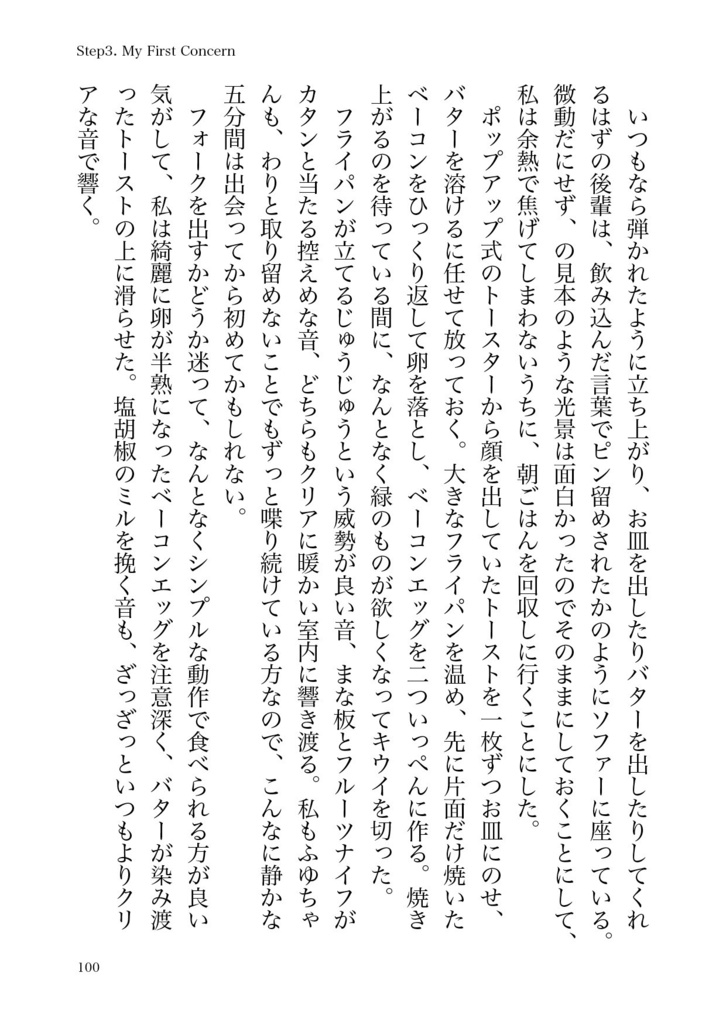 Step3. My First Concern
　いつもなら弾かれたように立ち上がり、お皿を出したりバターを出したりしてくれ
るはずの後輩は、飲み込んだ言葉でピン留めされたかのようにソファーに座っている。
微動だにせず、の見本のような光景は面白かったのでそのままにしておくことにして、
私は余熱で焦げてしまわないうちに、朝ごはんを回収しに行くことにした。
　ポップアップ式のトースターから顔を出していたトーストを一枚ずつお皿にのせ、
バターを溶けるに任せて放っておく。大きなフライパンを温め、先に片面だけ焼いた
ベーコンをひっくり返して卵を落とし、ベーコンエッグを二ついっぺんに作る。焼き
上がるのを待っている間に、なんとなく緑のものが欲しくなってキウイを切った。
　フライパンが立てるじゅうじゅうという威勢が良い音、まな板とフルーツナイフが
カタンと当たる控えめな音、どちらもクリアに暖かい室内に響き渡る。私もふゆちゃ
んも、わりと取り留めないことでもずっと喋り続けている方なので、こんなに静かな
五分間は出会ってから初めてかもしれない。
　フォークを出すかどうか迷って、なんとなくシンプルな動作で食べられる方が良い
気がして、私は綺麗に卵が半熟になったベーコンエッグを注意深く、バターが染み渡
ったトーストの上に滑らせた。塩胡椒のミルを挽く音も、ざっざっといつもよりクリ
アな音で響く。
100